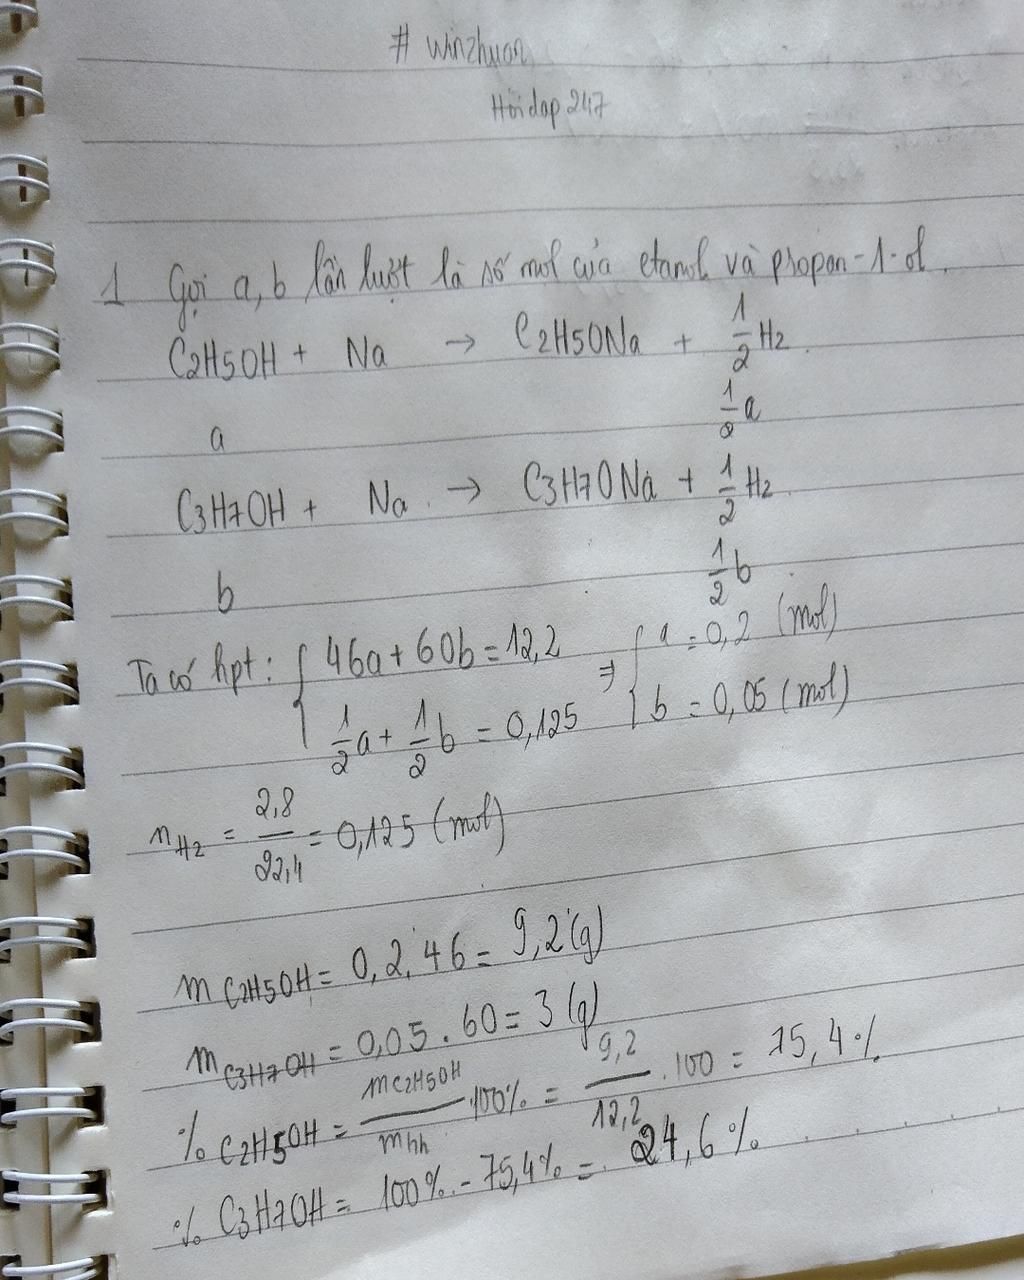 # winzhuon
Hỏi dap 247
1 Gọi a, b lần lượt là số mol của etanol và propan-1-ol.
C2H5OH + Na → C2H5ONa + 1/2 H2
a 1/2 a
C3H7OH + Na → C3H7ONa + 1/2 H2
b 1/2 b
Ta có hpt: { 46a + 60b = 12,2 ⇒ { a = 0,2 (mol)
1/2 a + 1/2 b = 0,125 b = 0,05 (mol)
nH2 = 2,8/22,4 = 0,125 (mol)
mC2H5OH = 0,2.46 = 9,2 (g)
mC3H7OH = 0,05.60 = 3 (g)
% C2H5OH = mC2H5OH/mhh .100% = 9,2/12,2 .100 = 75,4%
% C3H7OH = 100% - 75,4% = 24,6%